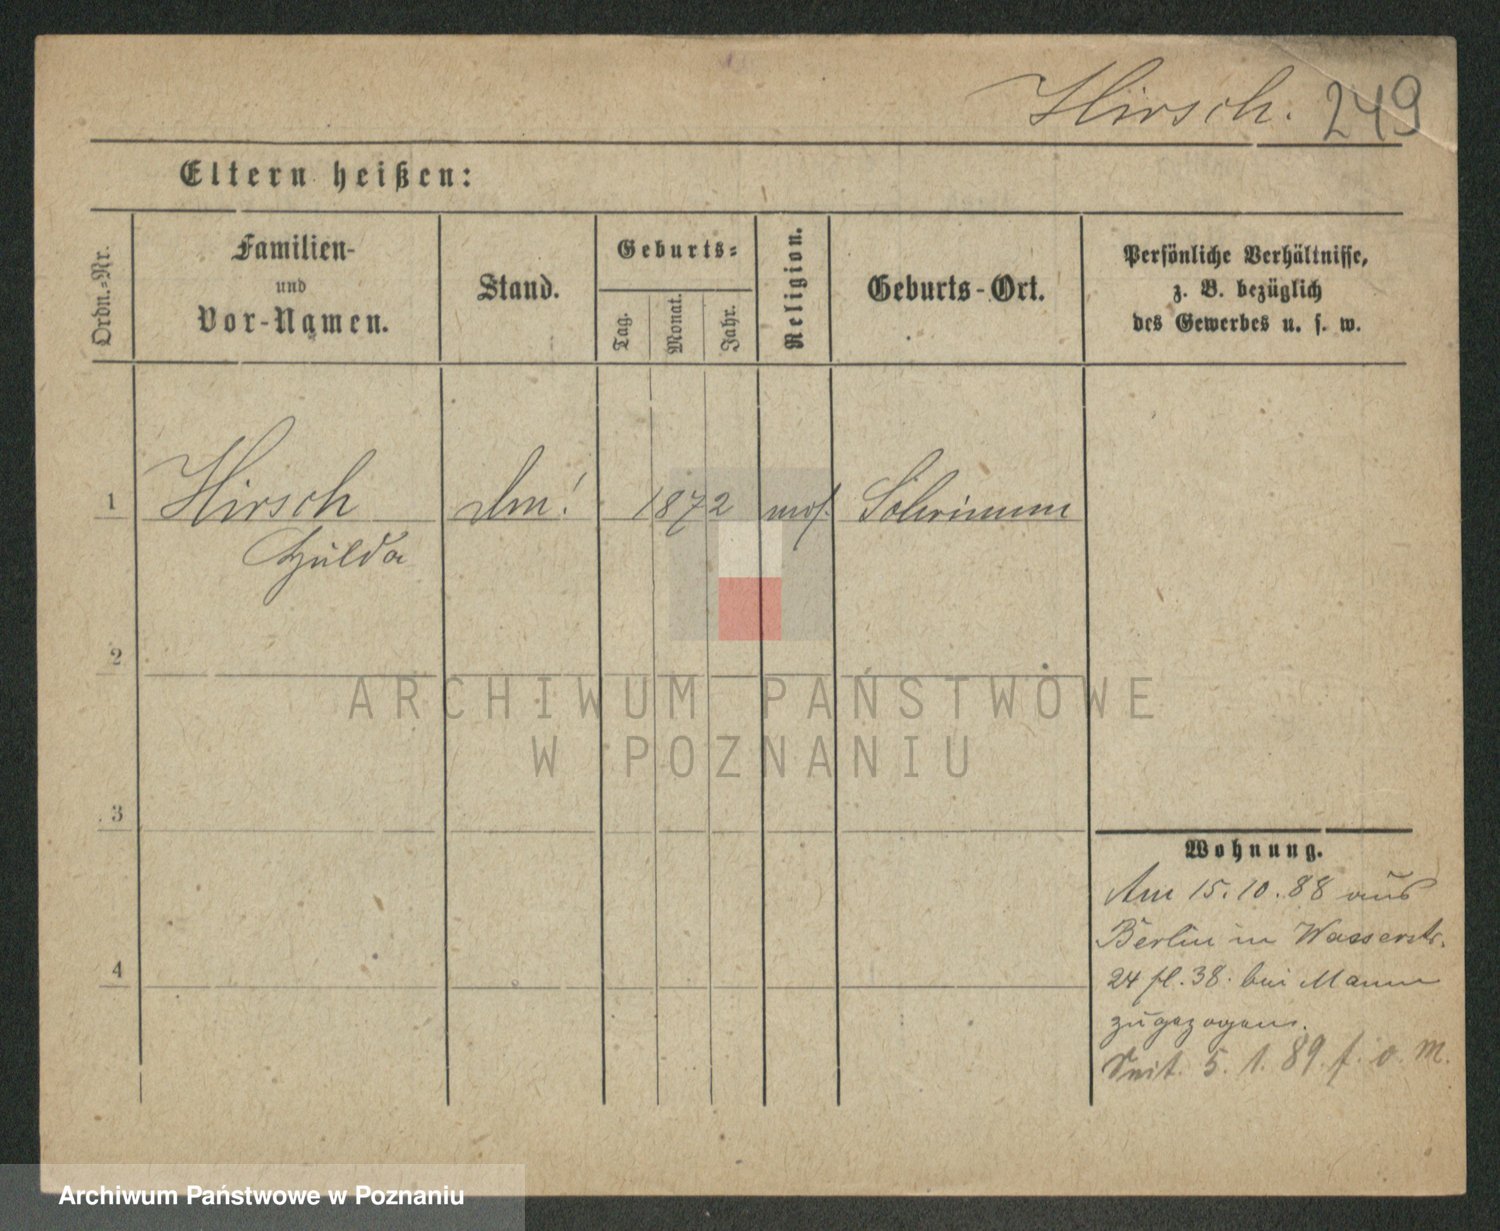 Hirsch. 249
Eltern heißen:
Ordn.-Nr.
Familien-
und
Vor-Namen.
Stand.
Geburts-
Tag.
Monat.
Jahr.
Religion.
Geburts-Ort.
Persönliche Verhältnisse,
z. B. bezüglich
des Gewerbes u. s. w.
1 Hirsch 1872 mos. Schrimm
Hulda
2
3
4
Wohnung.
Am 15.10.88 aus
Berlin in Wasserstr.
24 fl. 38. bei Mann
zugezogen.
Seit 5. 1. 89. f. o. M.
ARCHIWUM PAŃSTWOWE
W POZNANIU
Archiwum Państwowe w Poznaniu